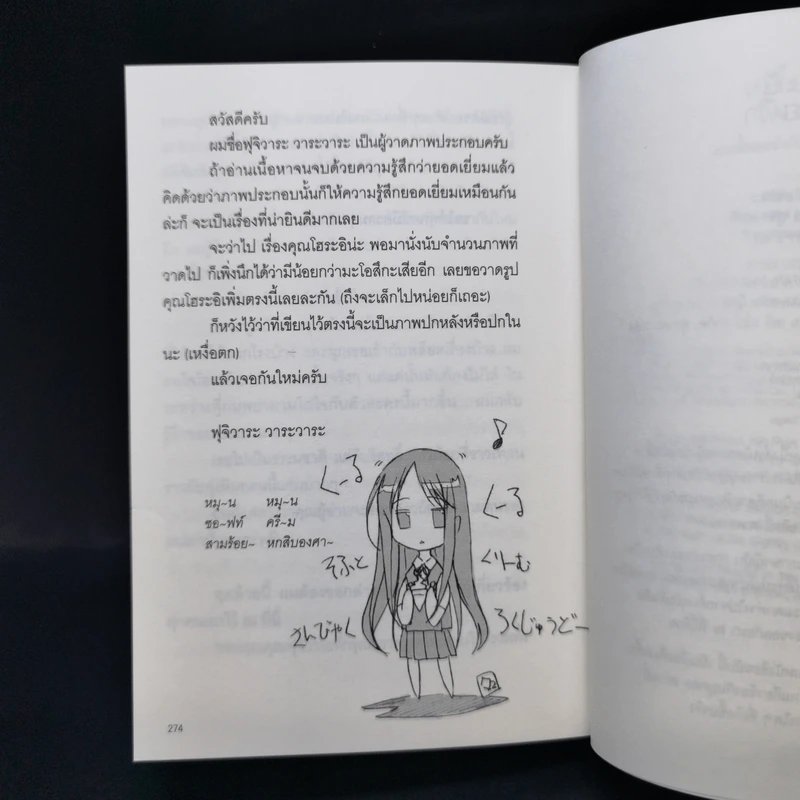 สวัสดีครับ
ผมชื่อฟุจิวาระ วาระวาระ เป็นผู้วาดภาพประกอบครับ
ถ้าอ่านเนื้อหาจนจบด้วยความรู้สึกว่ายอดเยี่ยมแล้ว
คิดด้วยว่าภาพประกอบนั้นก็ให้ความรู้สึกยอดเยี่ยมเหมือนกัน
ล่ะก็ จะเป็นเรื่องที่น่ายินดีมากเลย
จะว่าไป เรื่องคุณโฮระอิน่ะ พอมานั่งนับจำนวนภาพที่
วาดไป ก็เพิ่งนึกได้ว่ามีน้อยกว่ามะโอสึกะเสียอีก เลยขอวาดรูป
คุณโฮระอิเพิ่มตรงนี้เลยละกัน (ถึงจะเล็กไปหน่อยก็เถอะ)
ก็หวังไว้ว่าที่เขียนไว้ตรงนี้จะเป็นภาพปกหลังหรือปกใน
นะ (เหงื่อตก)
แล้วเจอกันใหม่ครับ
ฟุจิวาระ วาระวาระ
หมุ~น หมุ~น
ซอ~ฟท์ ครี~ม
สามร้อย~ หกสิบองศา~
くーる くーる
そふと くりーむ
さんびゃく ろくじゅうどー
274